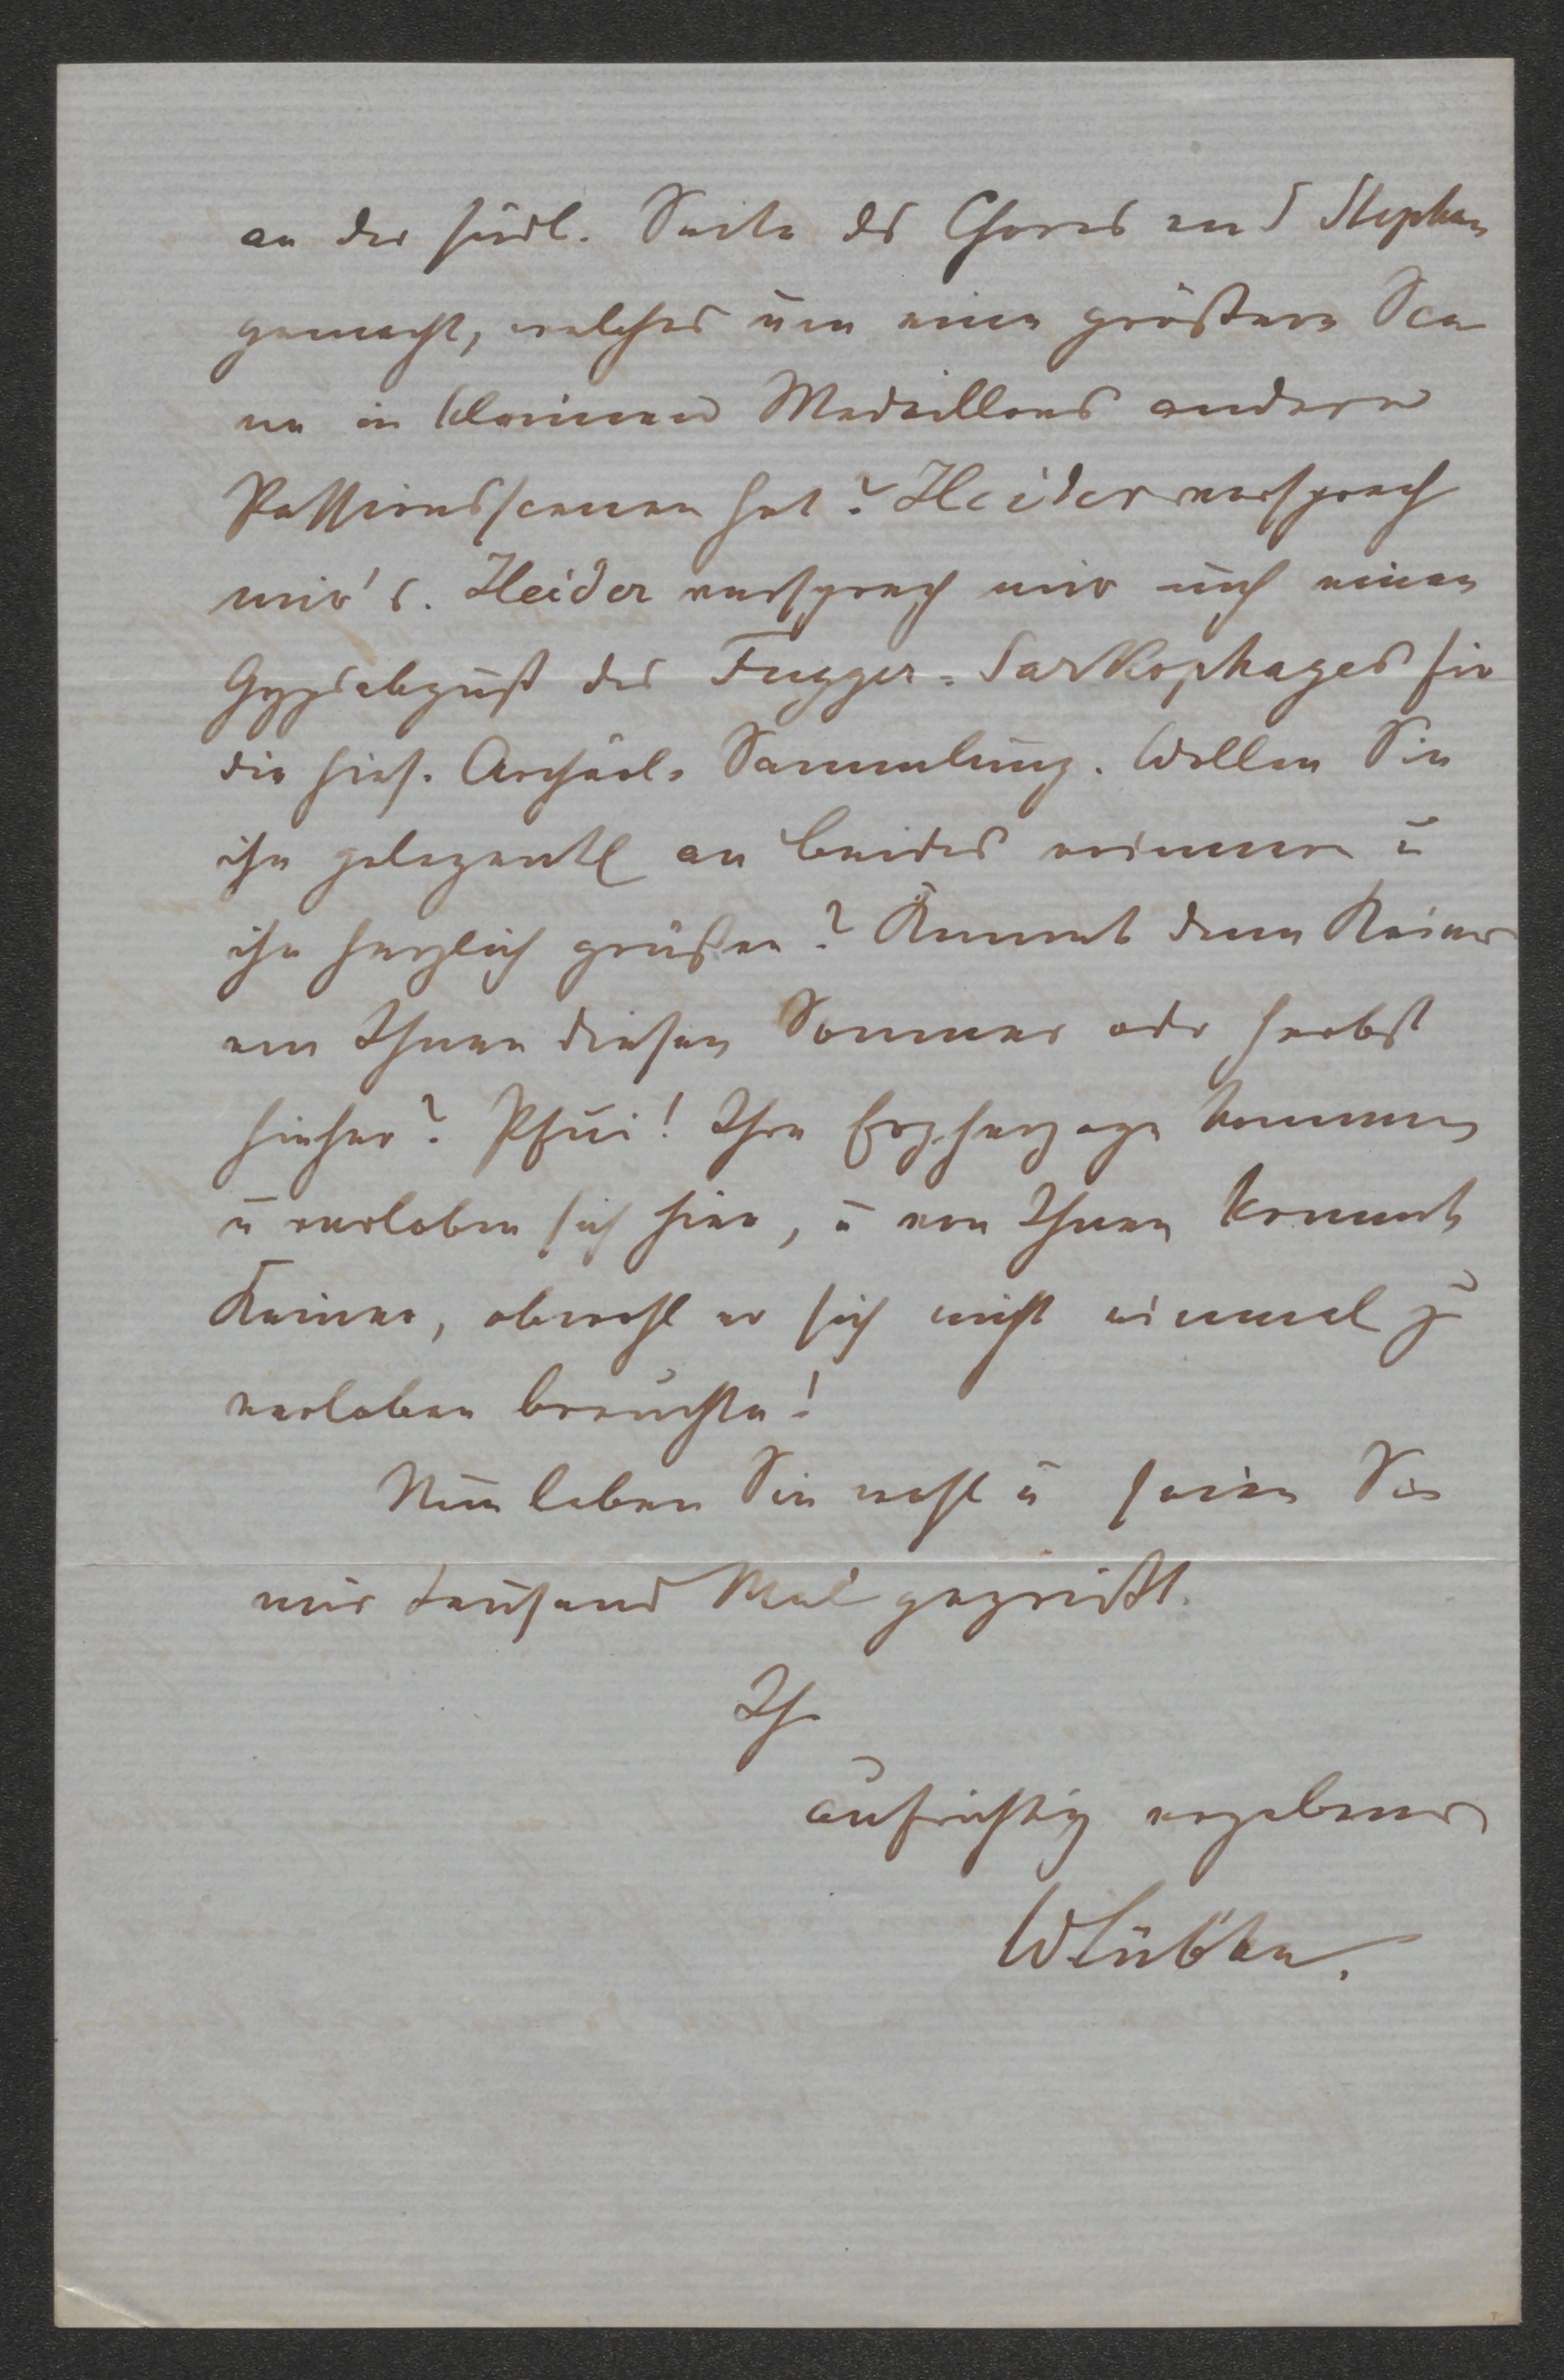 an der südl. Seite des Chores von S Stephan
gemacht, welches um eine größere Sce
ne in kleineren Medaillons andere
Passionsscenen hat? Heider versprach
mir's. Heider versprach mir auch einen
Gypsabguß des Fugger-Sarkophages für
die hies. Archäol. Sammlung. Wollen Sie
ihn gelegentl an beides erinnern u
ihn herzlich grüßen? Kommt denn Keiner
von Ihnen diesen Sommer oder Herbst
hieher? Pfui! Ihre Erzherzoge kommen
u verloben sich hier, u von Ihnen kommt
Keiner, obwohl er sich nicht einmal zu
verloben brauchte!
Nun leben Sie wohl u seien Sie
mir tausend Mal gegrüßt.
Ihr
aufrichtig ergebener
WLübke.